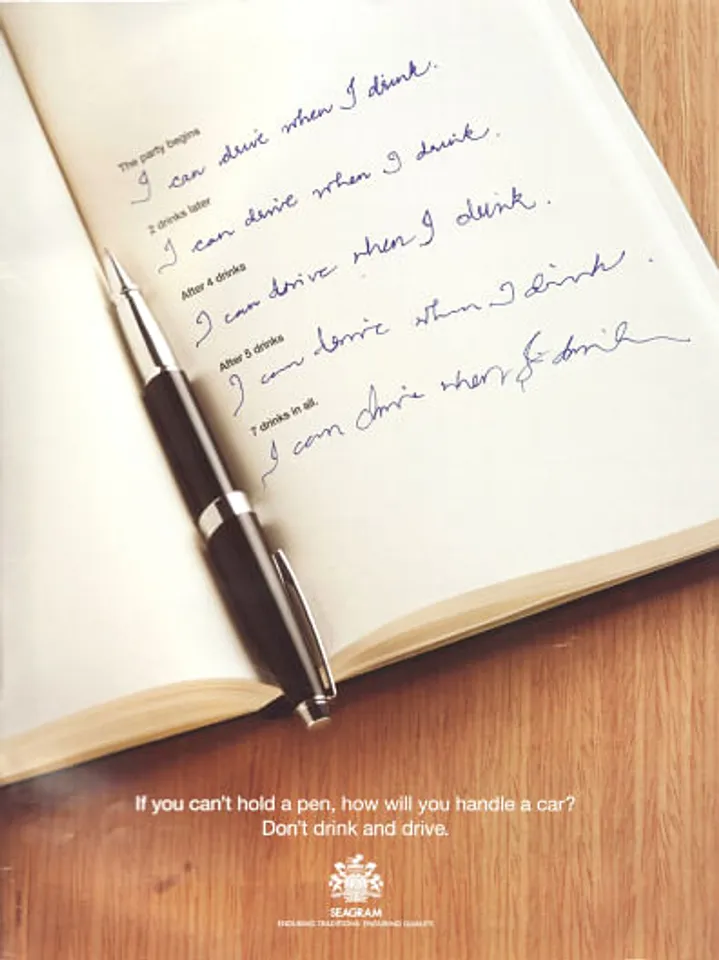 The party begins
I can drive when I drink.
2 drinks later
I can drive when I drink.
After 4 drinks
I can drive when I drink.
After 5 drinks
I can drive when I drink.
7 drinks in all.
I can drive when I drink
If you can't hold a pen, how will you handle a car?
Don't drink and drive.
SEAGRAM
ENDURING TRADITIONS. ENDURING QUALITY.